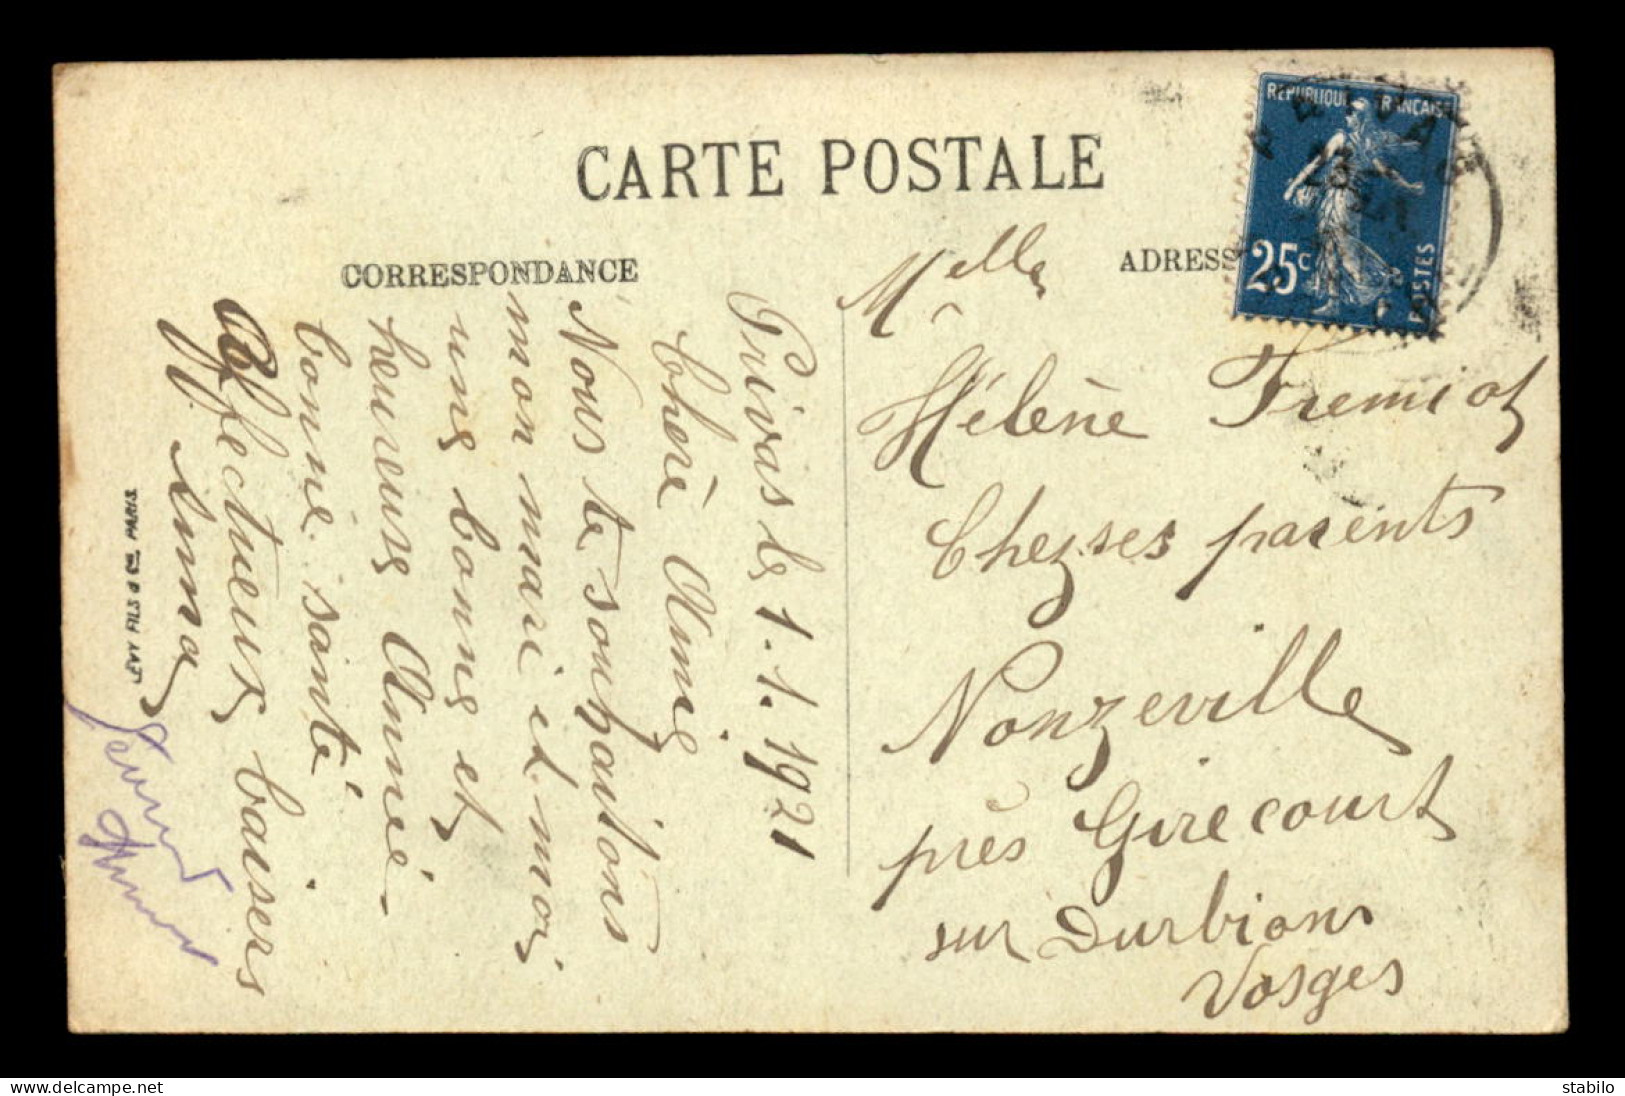 CARTE POSTALE
CORRESPONDANCE
ADRESS
REPUBLIQUE FRANÇAISE
25c
POSTES
PRIVAS
23
Privas le 1.1.1921
Chère Amie
Nous te souhaitons
mon mari et moi
une bonne et
heureuse Année
bonne santé.
Affectueux baisers
LEVY FILS & Cie PARIS
Melle
Hélène Fremiot
Chez ses parents
Nonzeville
près Girecourt
sur Durbion
Vosges
delcampe.net
stabilo